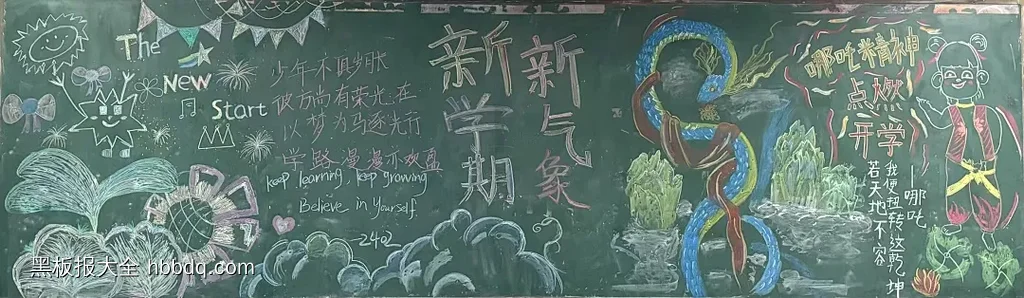 The
New
Start
少年不惧岁月长
彼方尚有荣光在
以梦为马逐光行
学路漫漫亦欢喜
keep learning, keep growing
Believe in yourself.
2402
新学期
新气象
哪吒精神
点燃
开学
若天地不容
我便扭转这乾坤
——哪吒
黑板报大全 hbbdq.com